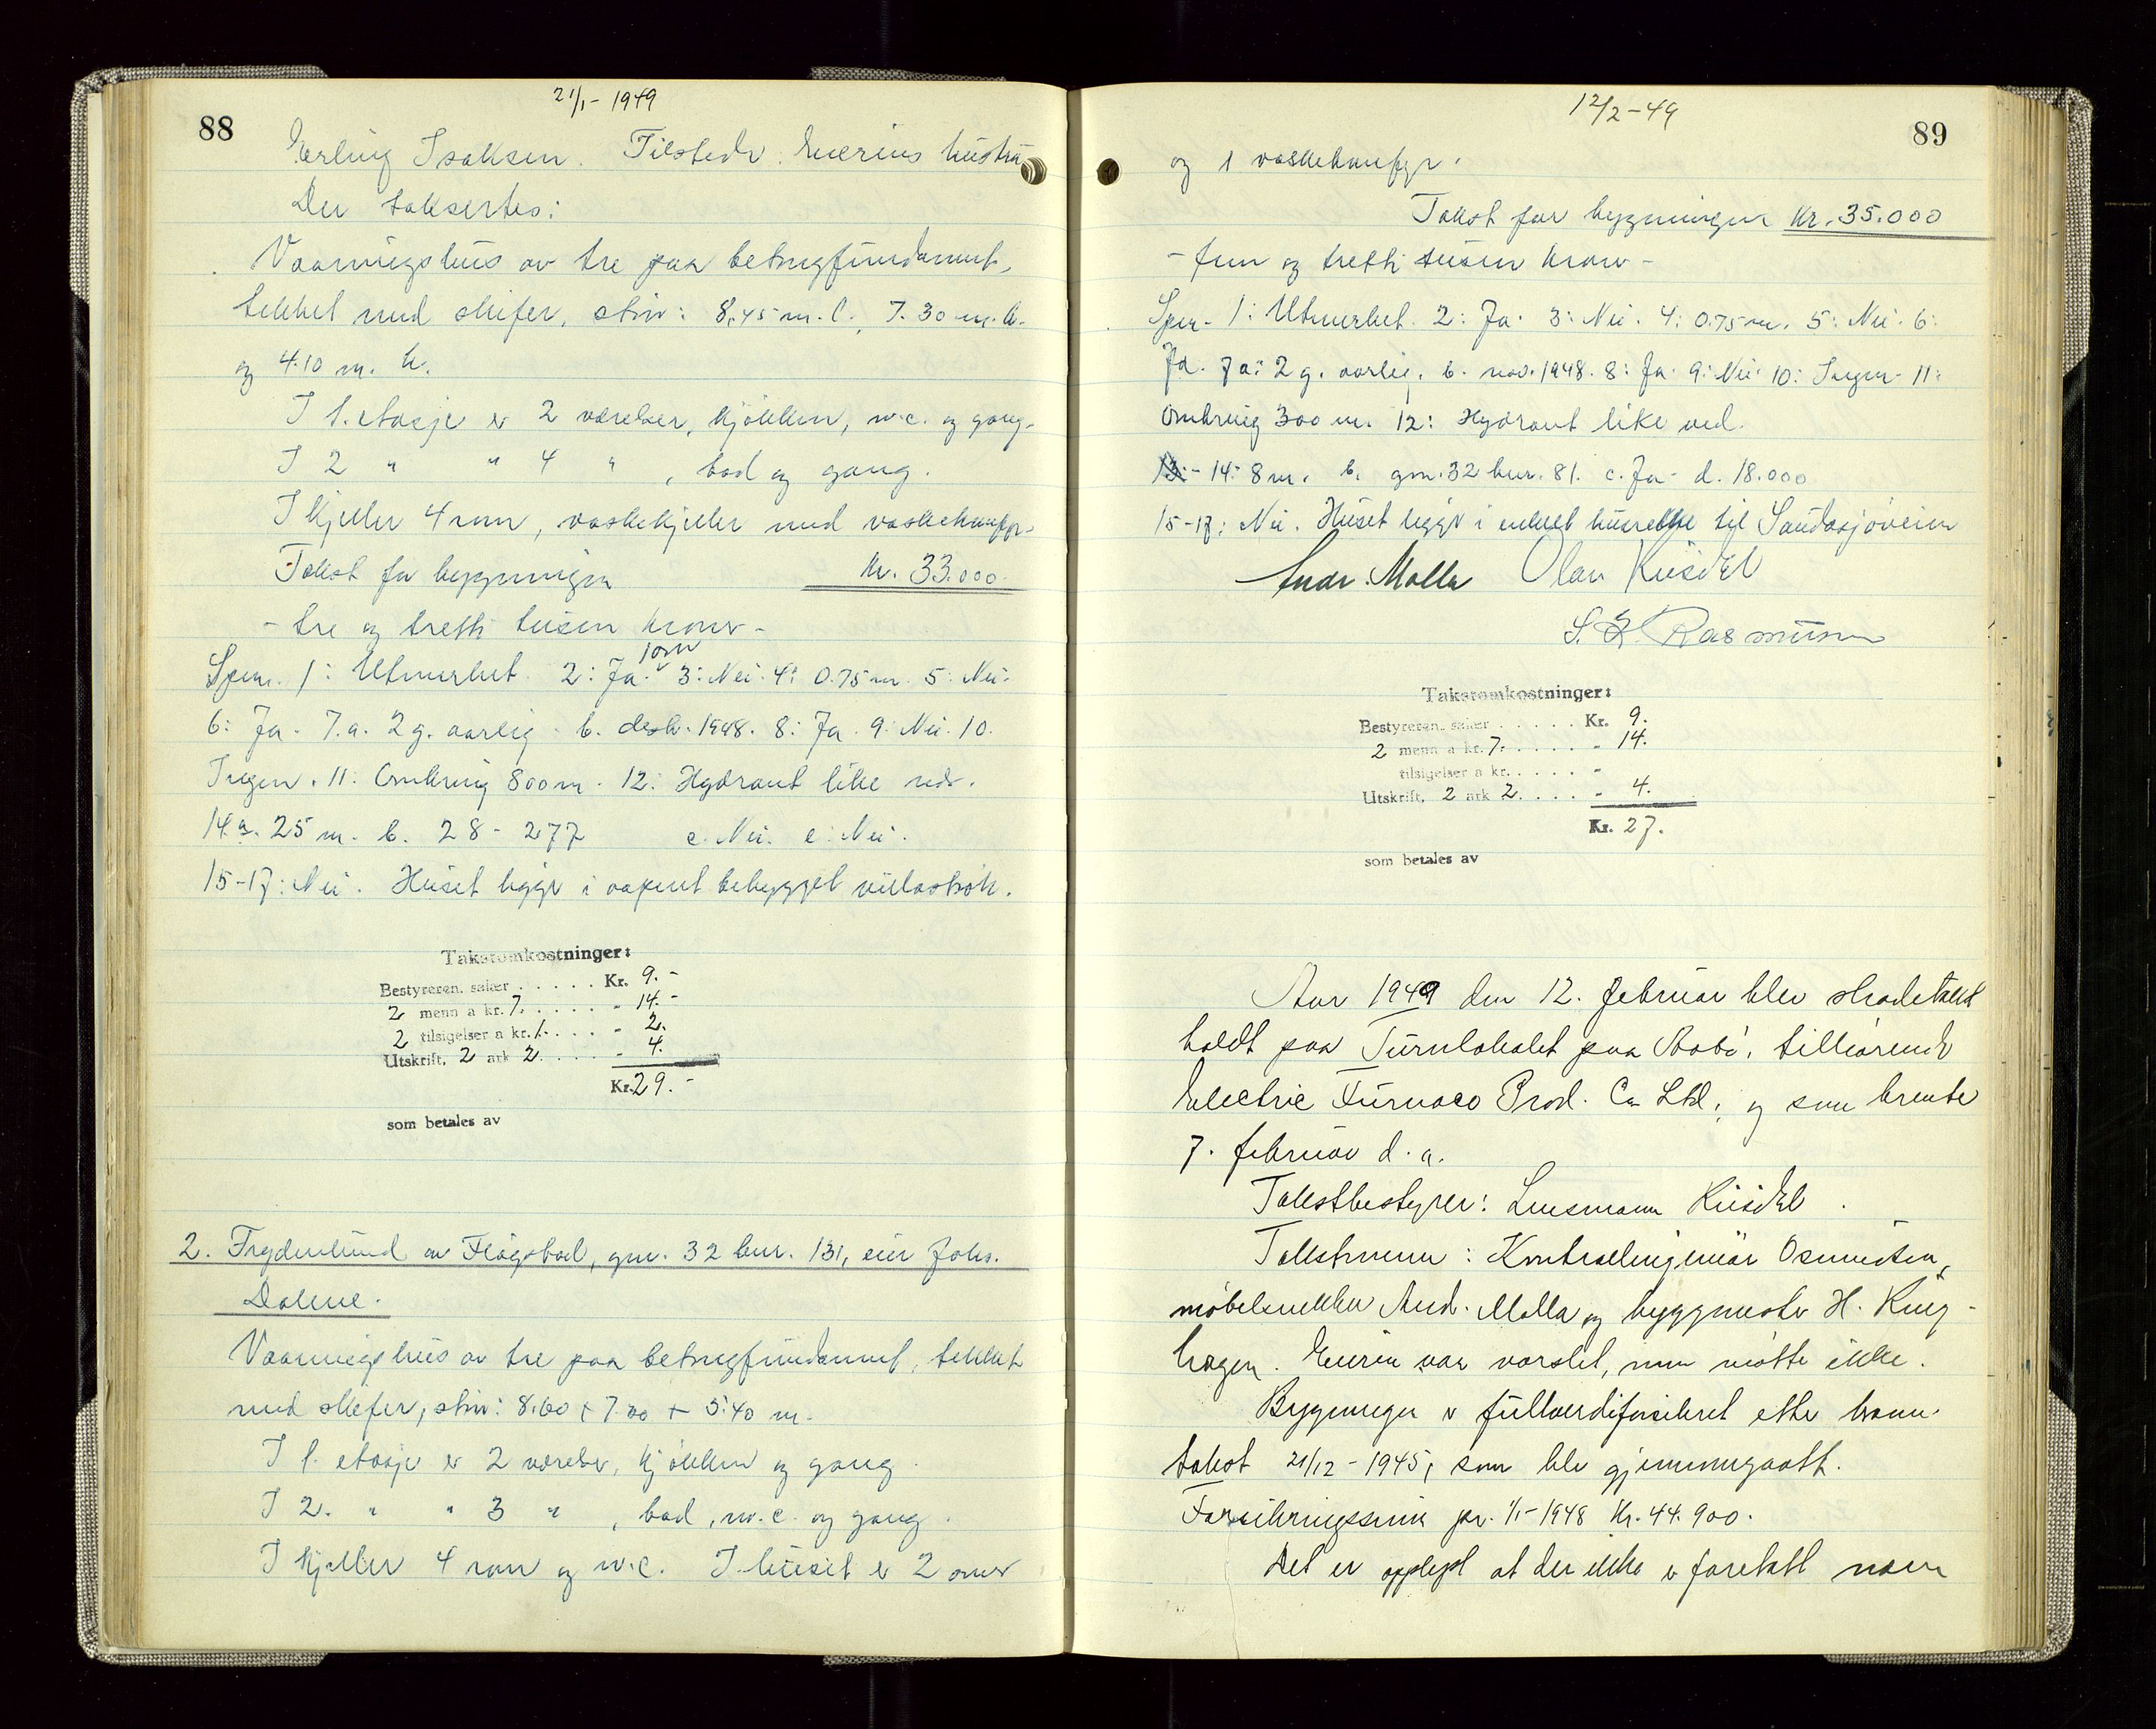 88
21/1 - 1949
Erling Isaksen. Tilstede: Eierens hustru
Der taksertes:
Vaaningshus av tre paa betongfundament,
tekket med skifer, størr: 8,45 m. l., 7.30 m. b.
og 4.10 m. h.
I 1. etasje er 2 værelser, kjökken, w.c. og gang.
I 2 " " 4 " , bad og gang.
I kjeller 4 rom, vaskekjeller med
Takst for bygningen kr. 33.000.
- tre og tretti tusen kroner -
Spm. 1: Utmerket. 2: Ja. 1 ovn 3: Nei. 4: 0.75 m. 5: Nei.
6: Ja. 7.a. 2 g. aarlig. b. desbr. 1948. 8: Ja. 9: Nei. 10.
Ingen. 11: Omkring 800 m. 12: Hydrant like ved.
14.a. 25 m. b. 28 - 277 c. Nei. e: Nei.
15-17: Nei. Huset ligger i aapent bebygget villastrøk.
Takstomkostninger:
Bestyreren, salær . . . . . Kr. 9.-
2 menn a kr. 7. . . . . . - 14.-
2 tilsigelser a kr. 1. . . . - 2.
Utskrift, 2 ark 2. . . . . - 4.
Kr. 29.-
som betales av
2. Frydenlund av Flogstad, gnr. 32 bnr. 131, eier Johs.
Dalene.
Vaaningshus av tre paa betongfundament, tekket
med skifer, størr: 8.60 + 7.00 + 5.40 m.
I 1. etasje er 2 værelser, kjökken og gang.
I 2. " " 3 " , bad, w.c. og gang.
I kjeller 4 rom og w.c. I huset er 2 ovner
12/2-49
89
og 1
Takst for bygningen kr. 35.000
- fem og tretti tusen kroner -
Spm. 1: Utmerket. 2: Ja. 3: Nei. 4: 0.75 m. 5: Nei. 6:
Ja. 7a: 2 g. aarlig. b. nov. 1948. 8: Ja. 9: Nei. 10: Ingen. 11:
Omkring 300 m. 12: Hydrant like ved.
13: - 14: 8 m. b. gnr. 32 bnr. 81. c. Ja. d. 18.000
15-17: Nei. Huset ligger i enkelt husrekke til Saudasjøveien
Andr. Malla Olav Küsdel
S. E. Rasmussen
Takstomkostninger:
Bestyreren, salær . . . . . Kr. 9.
2 menn a kr. 7. . . . . . - 14.
tilsigelser a kr. . . . . -
Utskrift, 2 ark 2. . . . . - 4.
Kr. 27.
som betales av
Aar 1949 den 12. februar blev skadetakst
holdt paa Turnlokalet paa Aabö, tilhørende
Electric Furnace Prod. Co Ltd, og som brente
7. februar d.a.
Takstbestyrer: Lensmann Küsdel.
Takstmenn: Kontrollingeniør Osmundsen,
møbelsnekker And. Malla og byggmester H. Ring-
hagen. Eieren var varslet, men møtte ikke.
Bygningen er fullverdiforsikret etter brann-
takst 21/12 - 1945, som ble gjennemgaatt.
Forsikringssum pr. 1/1-1948 kr. 44.900.
Det er opplyst at der ikke er foretatt noen